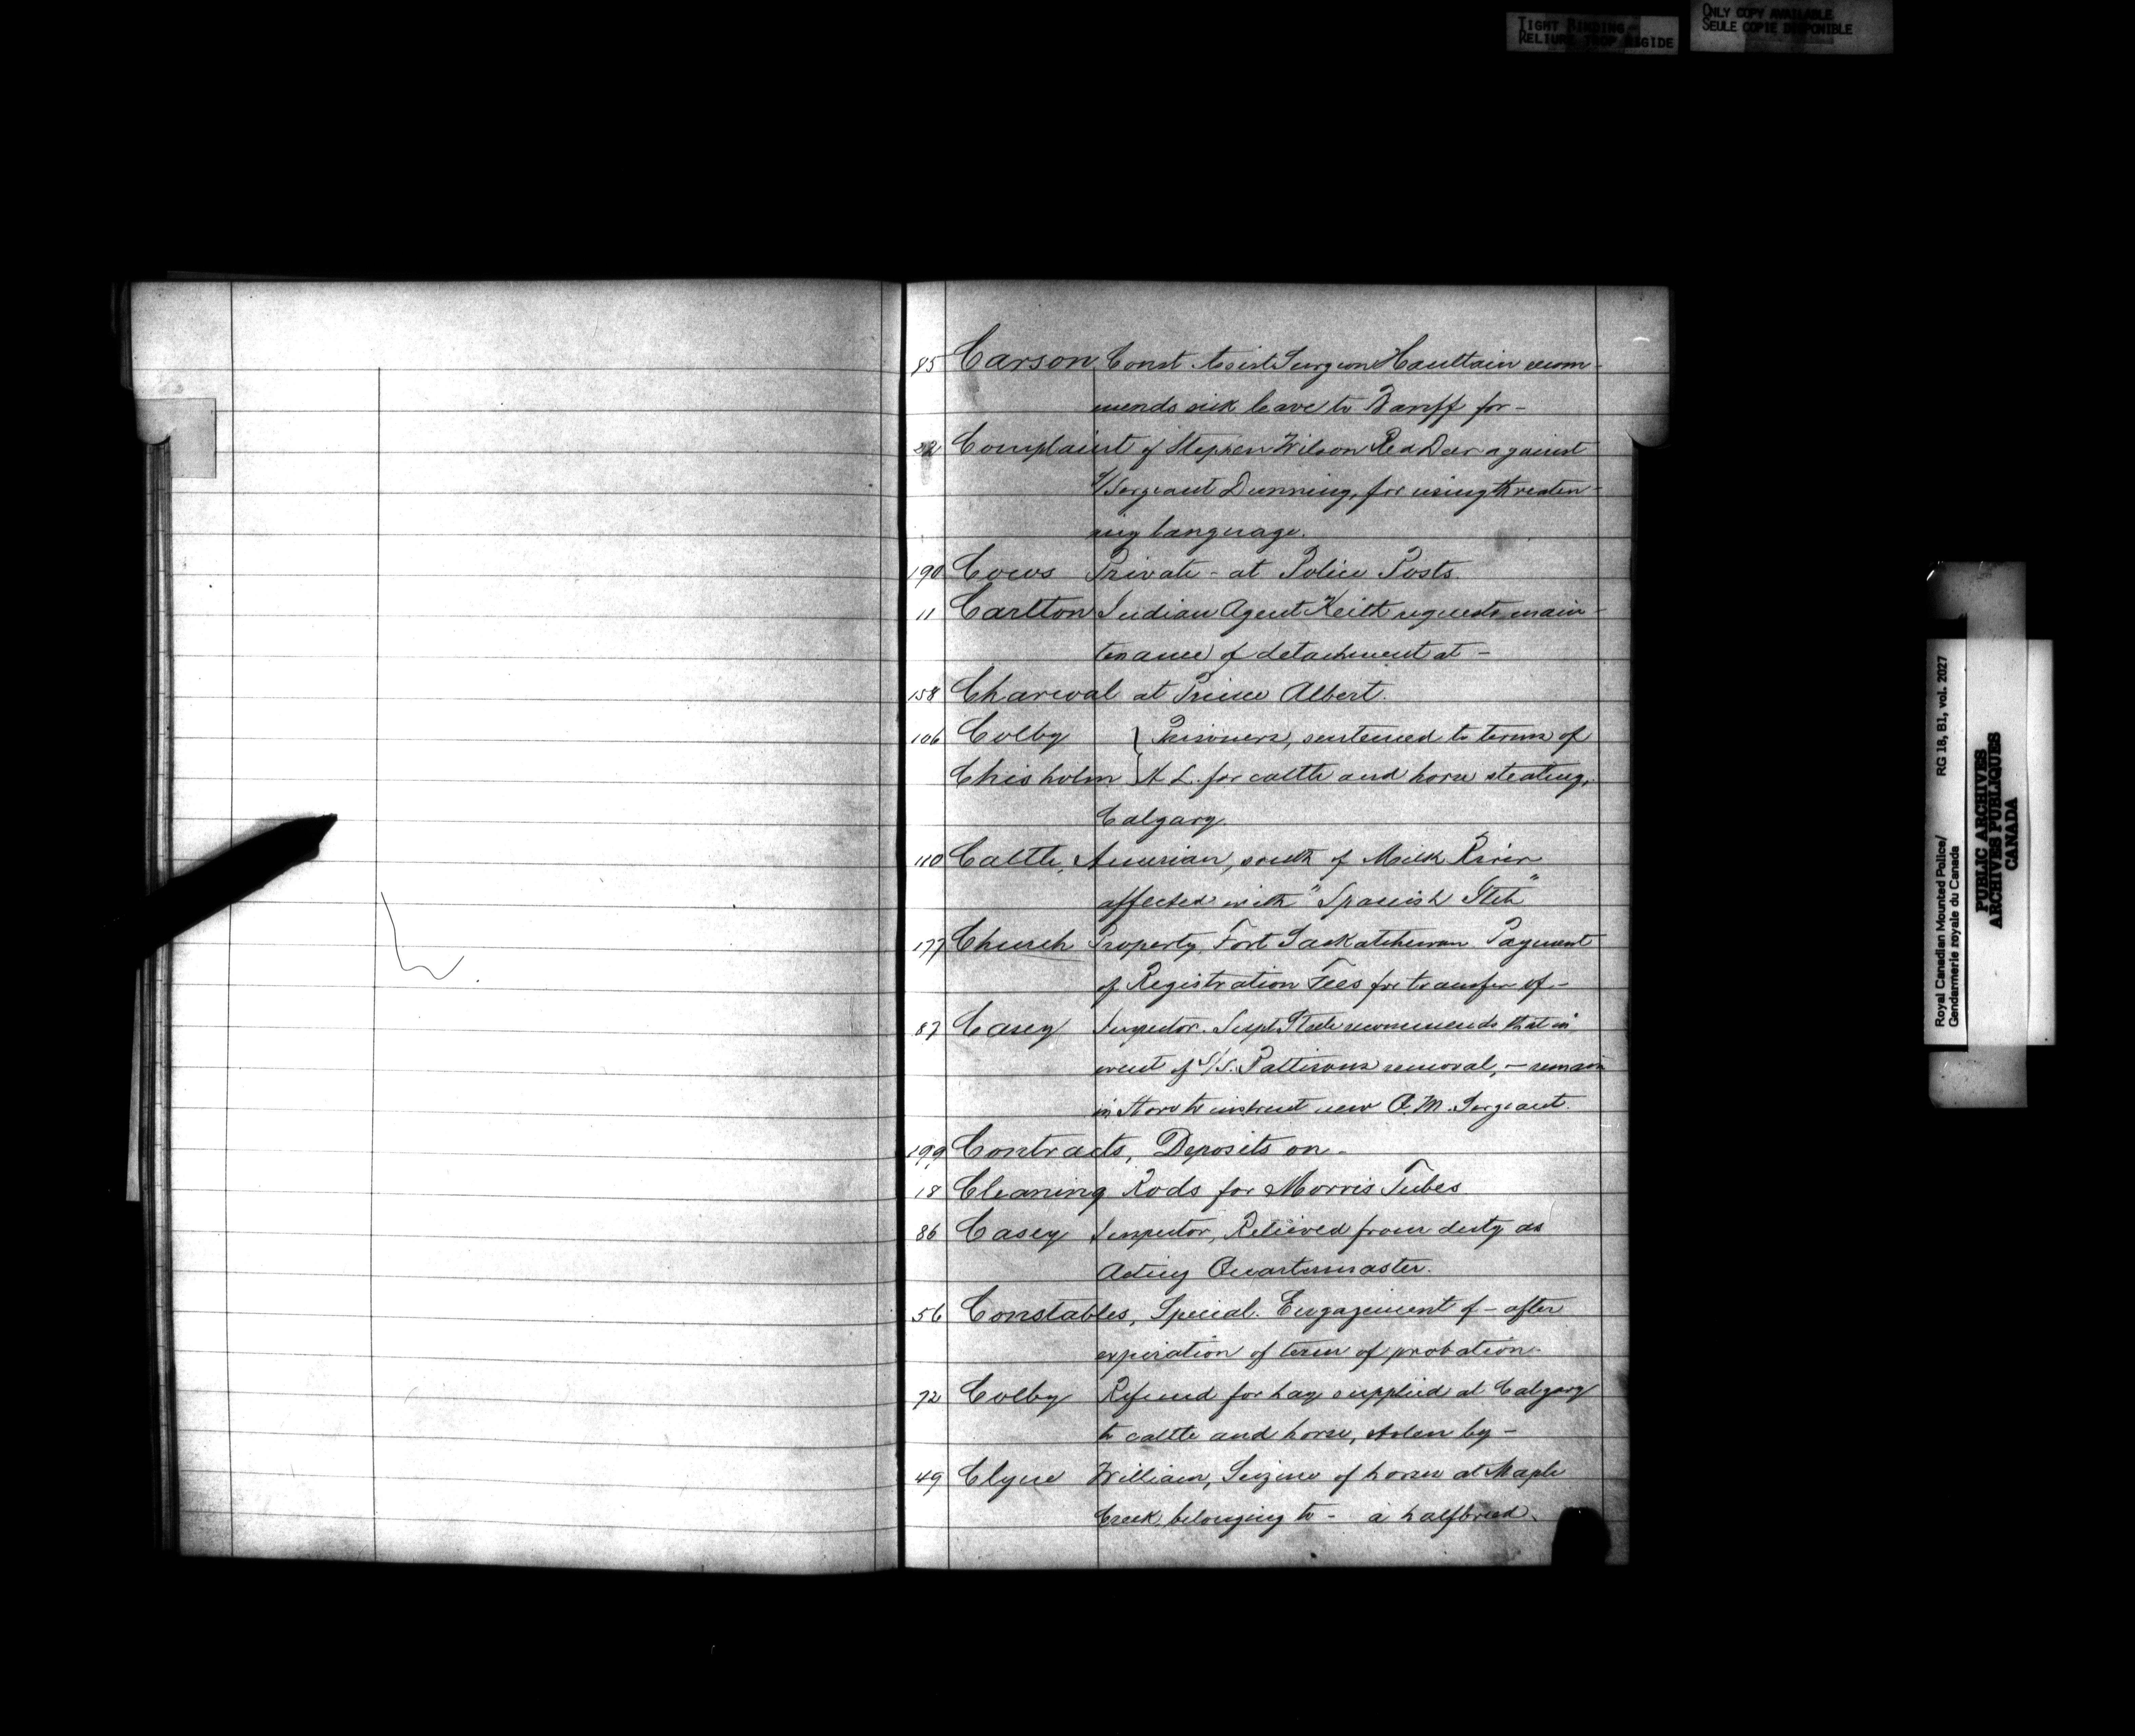 TIGHT BINDING
RELIURE TROP RIGIDE
ONLY COPY AVAILABLE
SEULE COPIE DISPONIBLE
85 Carson Const. Assist Surgeon Haultain recom-
mends sick leave to Banff for -
22 Complaint of Stephen Wilson Red Deer against
S/Sergeant Dunning, for using threaten-
ing language.
190 Cows Private - at Police Posts.
11 Carlton Indian Agent Keith requests main-
tenance of detachment at -
158 Charcoal at Prince Albert.
106 Colby } Prisoners, sentenced to terms of
Chisholm } H. L. for cattle and horse stealing,
Calgary.
110 Cattle, American, south of Milk River
affected with "Spanish Itch"
177 Church Property, Fort Saskatchewan Payment
of Registration Fees for transfer of -
87 Casey Inspector. Supt. Steele recommends that in
event of S/S. Pattisons removal, - remain
in Store to instruct new Q.M. Sergeant.
199 Contracts, Deposits on -
18 Cleaning Rods for Morris Tubes
86 Casey Inspector, Relieved from duty as
Acting Quartermaster.
56 Constables, Special. Engagement of - after
expiration of term of probation -
72 Colby Refund for hay supplied at Calgary
to cattle and horse, stolen by -
49 Clyne William, Seizure of horse at Maple
Creek belonging to - a halfbreed.
Royal Canadian Mounted Police/
Gendarmerie royale du Canada
RG 18, B1, vol. 2027
PUBLIC ARCHIVES
ARCHIVES PUBLIQUES
CANADA